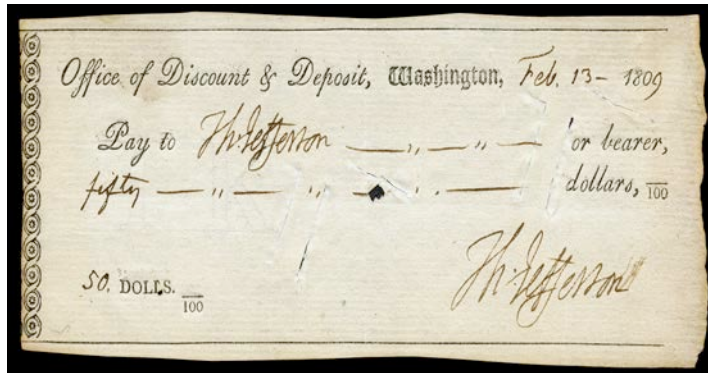 Office of Discount & Deposit, Washington, Feb. 13 - 1809
Pay to Th:Jefferson — „ — „ — or bearer,
fifty — „ — „ — „ — dollars, /100
50. DOLLS. /100
Th:Jefferson